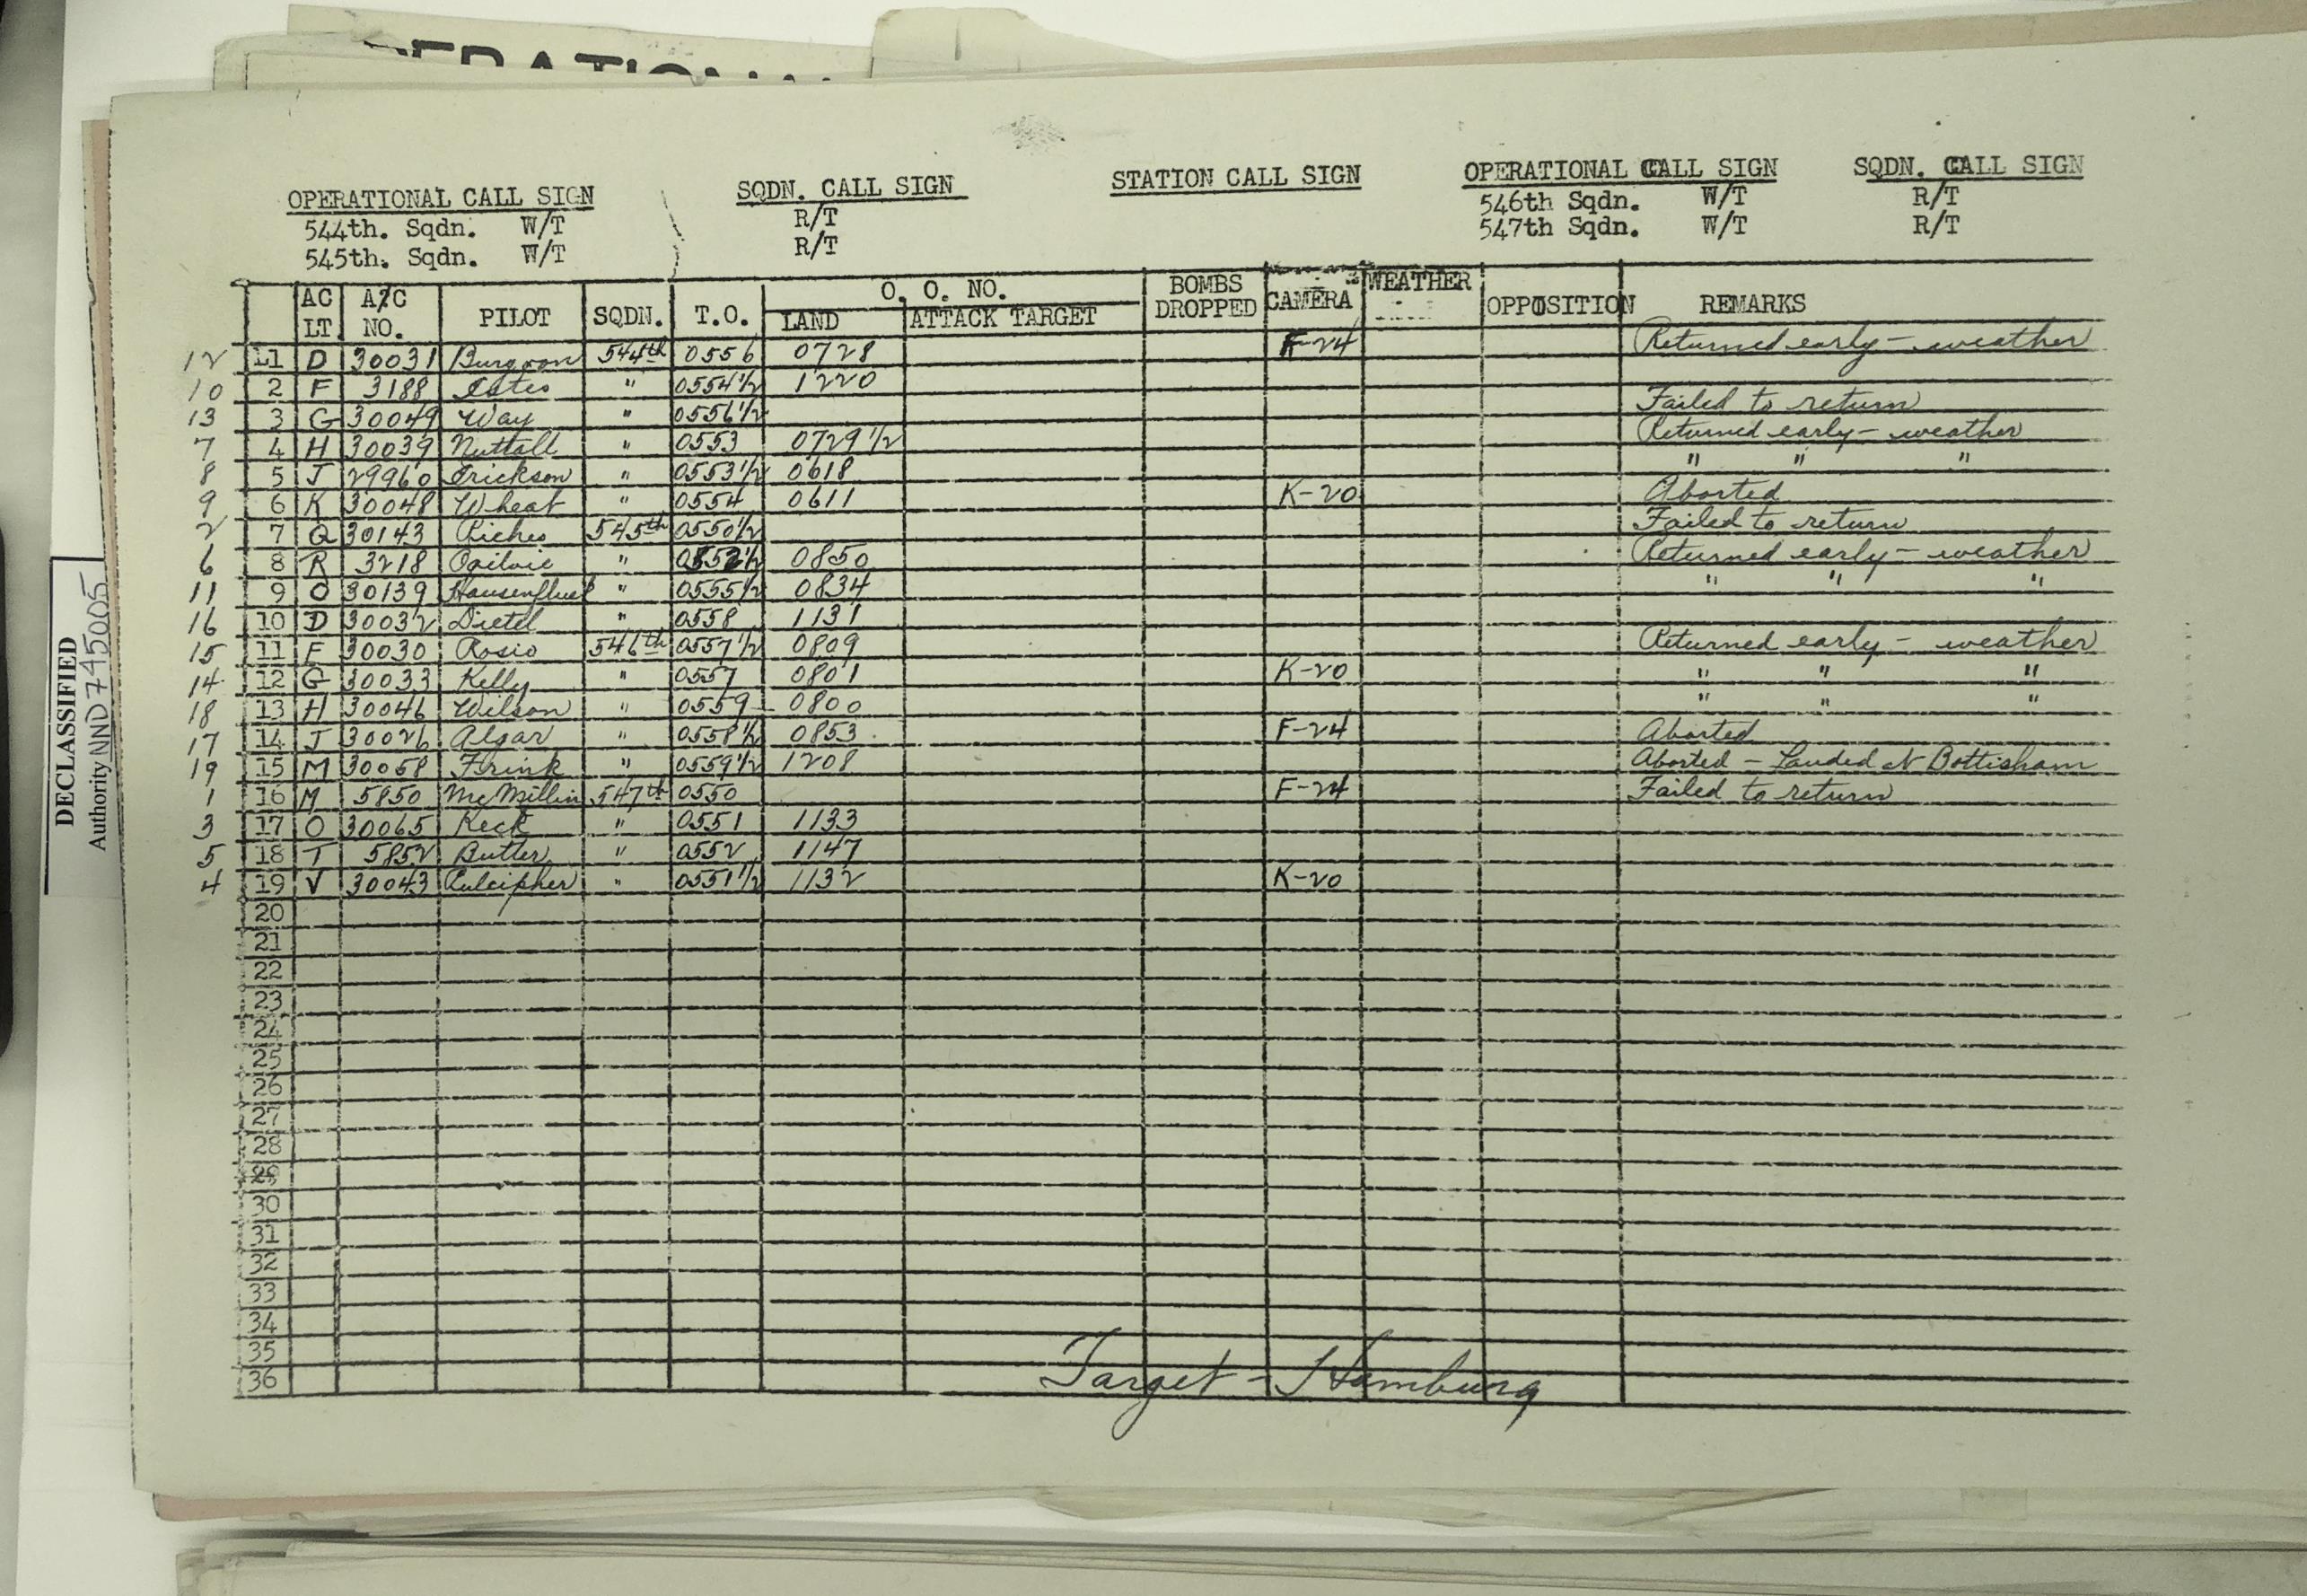 OPERATIONAL CALL SIGN SQDN. CALL SIGN STATION CALL SIGN OPERATIONAL CALL SIGN SQDN. CALL SIGN
544th. Sqdn. W/T R/T 546th Sqdn. W/T R/T
545th. Sqdn. W/T R/T 547th Sqdn. W/T R/T
AC LT. A/C NO. PILOT SQDN. T.O. O. O. NO. LAND ATTACK TARGET BOMBS DROPPED CAMERA WEATHER OPPOSITION REMARKS
12 11 D 30031 Burgoon 544th 0556 0728 F-24 Returned early - weather
10 2 F 3188 Estes " 0554 1/2 1220
13 3 G 30049 Way " 0556 1/2 Failed to return
7 4 H 30039 Nuttall " 0553 0729 1/2 Returned early - weather
8 5 J 29960 Erickson " 0553 1/2 0618 " " "
9 6 K 30048 Wheat " 0554 0611 K-20 Aborted
2 7 Q 30143 Riches 545th 0550 1/2 Failed to return
6 8 R 3218 Ogilvie " 0552 1/2 0850 Returned early - weather
11 9 O 30139 Hausenfluck " 0555 1/2 0834 " " "
16 10 D 30032 Dietel " 0558 1131
15 11 F 30030 Rosio 546th 0557 1/2 0809 Returned early - weather
14 12 G 30033 Kelly " 0557 0801 K-20 " " "
18 13 H 30046 Wilson " 0559 0800 " " "
17 14 J 30026 Algar " 0558 1/2 0853 F-24 Aborted
19 15 M 30058 Frink " 0559 1/2 1208 Aborted - Landed at Bottisham
1 16 M 5850 McMillin 547th 0550 F-24 Failed to return
3 17 O 30065 Keck " 0551 1133
5 18 T 5852 Butler " 0552 1147
4 19 V 30043 Pulcipher " 0551 1/2 1132 K-20
20
21
22
23
24
25
26
27
28
29
30
31
32
33
34
35
36
Target - Hamburg
DECLASSIFIED
Authority NND 745005